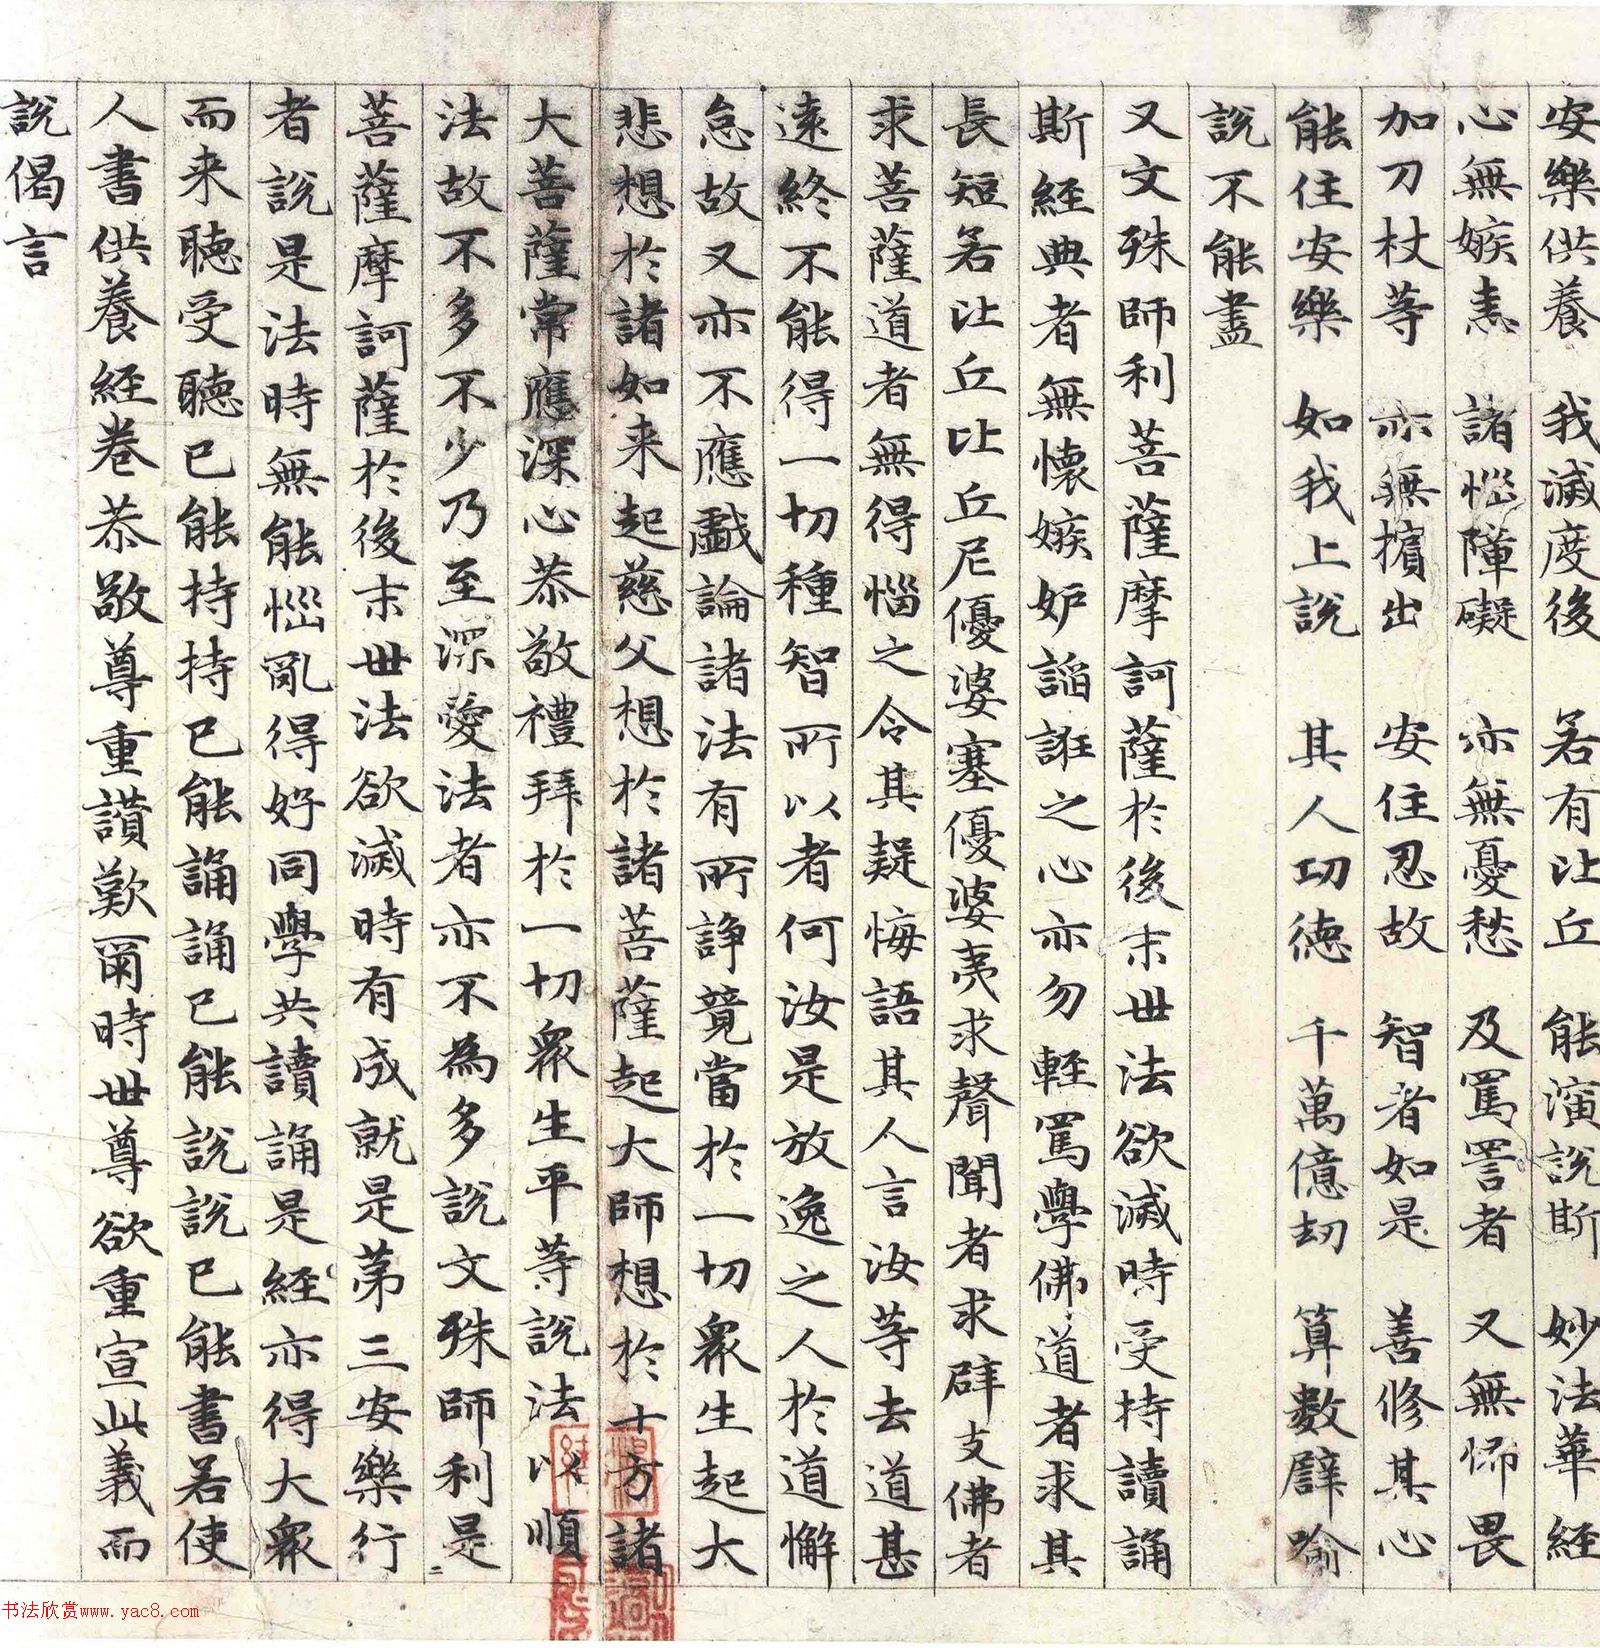 安樂供養　我滅度後　若有比丘　能演說斯　妙法華經
心無嫉恚　諸惱障礙　亦無憂愁　及罵詈者　又無怖畏
加刀杖等　亦無擯出　安住忍故　智者如是　善修其心
能住安樂　如我上說　其人功德　千萬億劫　算數譬喻
說不能盡
又文殊師利菩薩摩訶薩於後末世法欲滅時受持讀誦
斯經典者無懷嫉妒諂誑之心亦勿輕罵學佛道者求其
長短若比丘比丘尼優婆塞優婆夷求聲聞者求辟支佛者
求菩薩道者無得惱之令其疑悔語其人言汝等去道甚
遠終不能得一切種智所以者何汝是放逸之人於道懈
怠故又亦不應戲論諸法有所諍競當於一切眾生起大
悲想於諸如来起慈父想於諸菩薩起大師想於十方諸
大菩薩常應深心恭敬禮拜於一切眾生平等說法以順
法故不多不少乃至深愛法者亦不為多說文殊師利是
菩薩摩訶薩於後末世法欲滅時有成就是第三安樂行
者說是法時無能惱亂得好同學共讀誦是經亦得大眾
而来聽受聽已能持持已能誦誦已能說說已能書若使
人書供養經卷恭敬尊重讚歎爾時世尊欲重宣此義而
說偈言
书法欣赏www.yac8.com